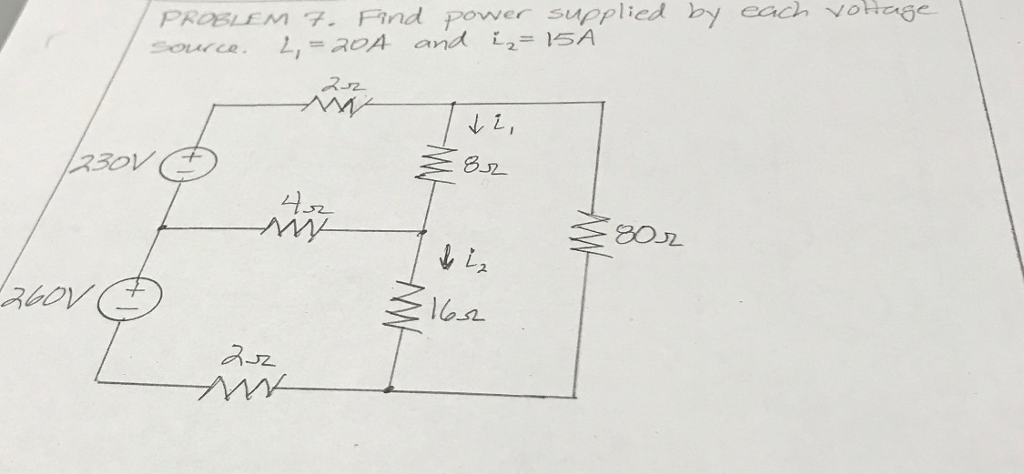 PROBLEM 7. Find power supplied by each voltage
source. i₁ = 20A and i₂ = 15A
2Ω
↓ i₁
230V
+
−
8Ω
4Ω
80Ω
↓ i₂
260V
+
−
16Ω
2Ω